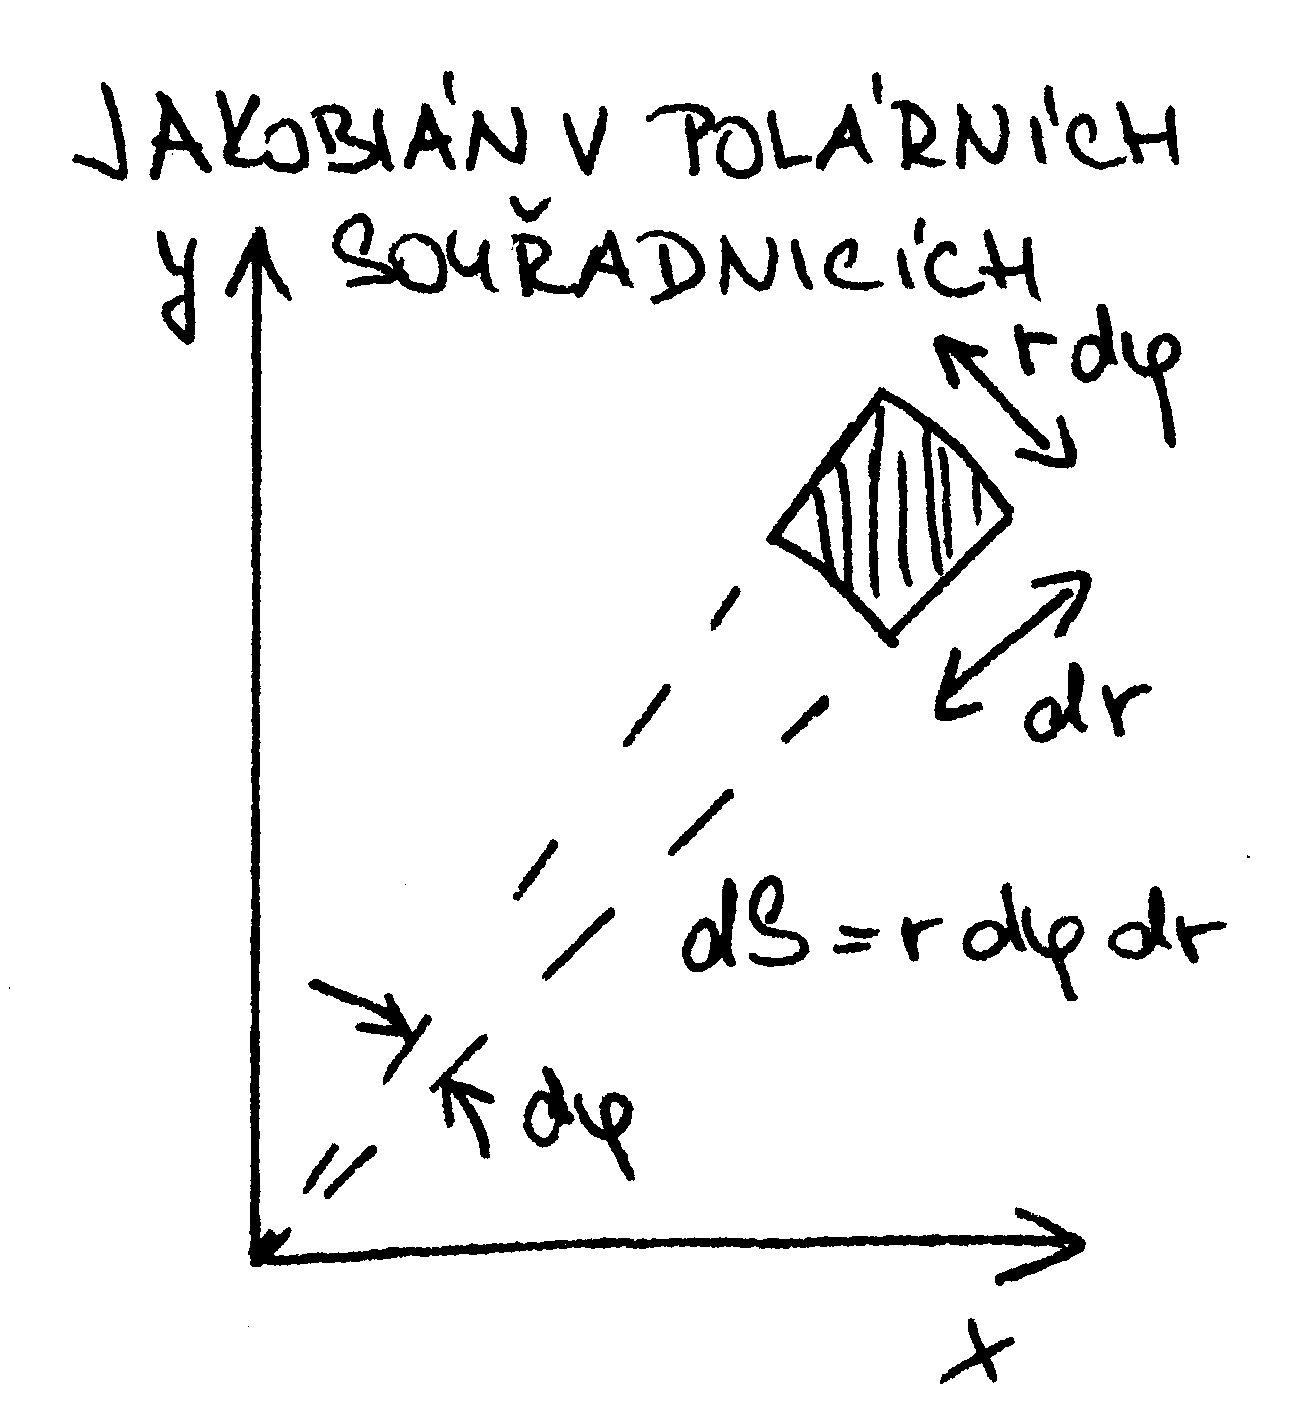 JAKOBIÁN V POLÁRNÍCH
SOUŘADNICÍCH
y
r dφ
dr
dS = r dφ dr
dφ
x